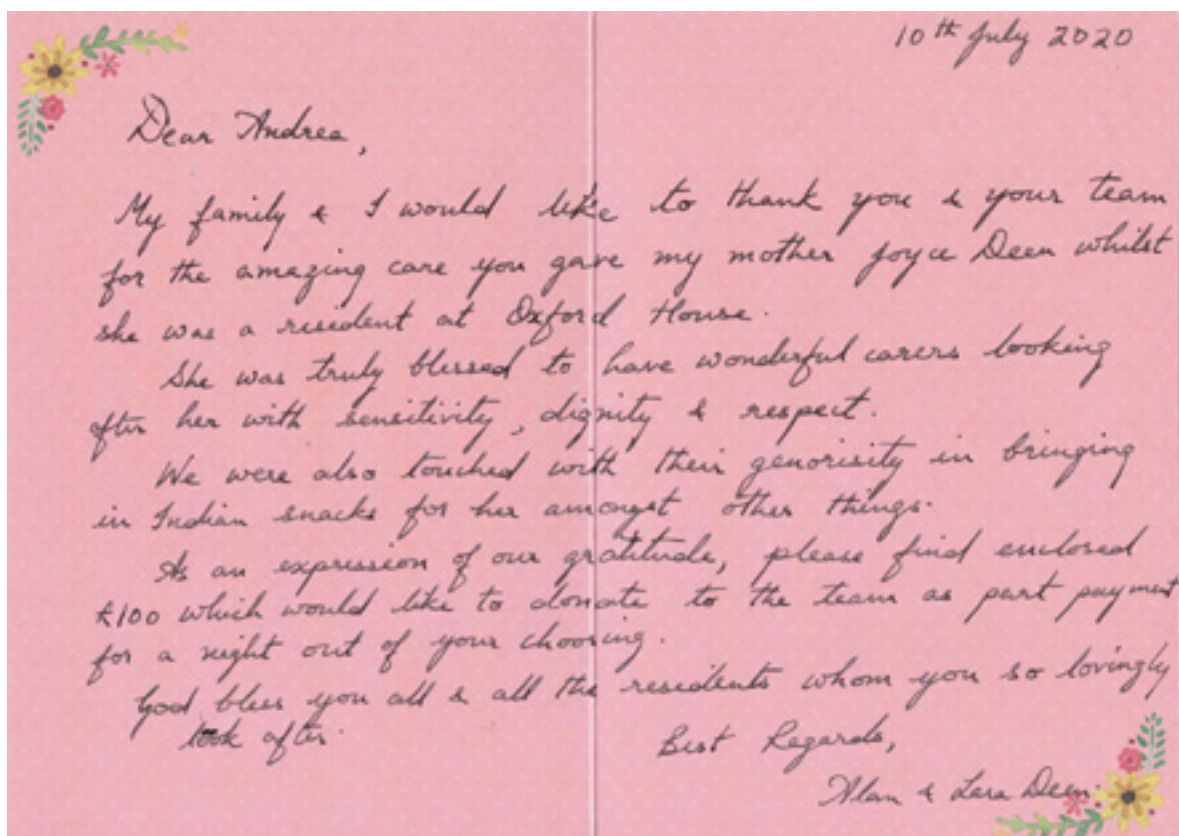 10th July 2020
Dear Andrea,
My family & I would like to thank you & your team
for the amazing care you gave my mother Joyce Deen whilst
she was a resident at Oxford House.
She was truly blessed to have wonderful carers looking
after her with sensitivity, dignity & respect.
We were also touched with their genorisity in bringing
in Indian snacks for her amongst other things.
As an expression of our gratitude, please find enclosed
£100 which would like to donate to the team as part payment
for a night out of your choosing.
God bless you all & all the residents whom you so lovingly
look after.
Best Regards,
Alan & Lara Deen.